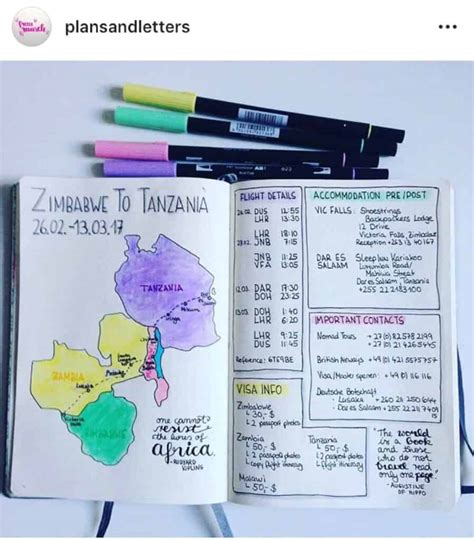 plansandletters
ZIMBABWE TO TANZANIA
26.02.-13.03.17
TANZANIA
ZAMBIA
ZIMBABWE
one cannot
resist
the lures of
africa.
-RUDYARD
KIPLING
FLIGHT DETAILS
26.02. DUS 12:55
LHR 13:30
LHR 18:10
27.02. JNB 7:15
JNB 11:25
VFA 13:05
12.03. DAR 17:30
DOH 23:25
13.03. DOH 1:40
LHR 6:20
LHR 9:25
DUS 11:45
Reference: 6TE9BE
VISA INFO
Zimbabwe
30,- $
2 passport photos
Zambia
50,- $
2 passport photos
copy flight itinerary
Malawi
50,- $
Tanzania
50,- $
2 passport photos
flight itinerary
ACCOMMODATION PRE/POST
VIC FALLS: Shoestrings
Backpackers Lodge
12 Drive
Victoria Falls, Zimbabwe
Reception +263 13 40167
DAR ES Sleep Inn Kariakoo
SALAAM Lumumba Road/
Mahiwa Street
Dar es Salaam, Tanzania
+255 22 2183100
IMPORTANT CONTACTS
Nomad Tours
British Airways
Visa/Master +49 116 116
Deutsche Botschaft
Lusaka
Dar es Salaam
"The world
is a Book
and those
who do not
travel read
only one page."
-AUGUSTINE
OF HIPPO